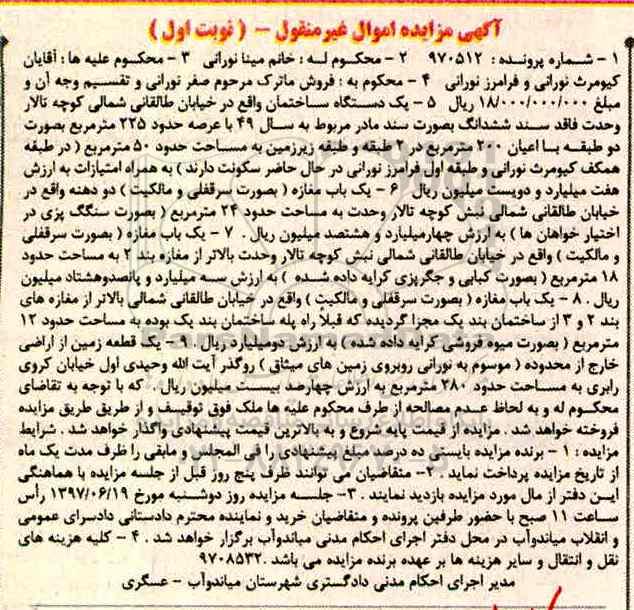 آگهی مزایده اموال غیرمنقول – ( نوبت اول )
۱ - شماره پرونده : ۹۷۰۵۱۲ ۲ - محکوم له : خانم مینا نورانی ۳ - محکوم علیه ها : آقایان
کیومرث نورانی و فرامرز نورانی ۴ - محکوم به : فروش ماترک مرحوم صفر نورانی و تقسیم وجه آن و
مبلغ ۱۸/۰۰۰/۰۰۰/۰۰۰ ریال ۵ - یک دستگاه ساختمان واقع در خیابان طالقانی شمالی کوچه تالار
وحدت فاقد سند ششدانگ بصورت سند مادر مربوط به سال ۴۹ با عرصه حدود ۲۲۵ مترمربع بصورت
دو طبقه با اعیان ۲۰۰ مترمربع در ۲ طبقه و طبقه زیرزمین به مساحت حدود ۵۰ مترمربع ( در طبقه
همکف کیومرث نورانی و طبقه اول فرامرز نورانی در حال حاضر سکونت دارند ) به همراه امتیازات به ارزش
هفت میلیارد و دویست میلیون ریال ۶ - یک باب مغازه ( بصورت سرقفلی و مالکیت ) دو دهنه واقع در
خیابان طالقانی شمالی نبش کوچه تالار وحدت به مساحت حدود ۲۴ مترمربع ( بصورت سنگگ پزی در
اختیار خواهان ها ) به ارزش چهارمیلیارد و هشتصد میلیون ریال . ۷ - یک باب مغازه ( بصورت سرقفلی
و مالکیت ) واقع در خیابان طالقانی شمالی نبش کوچه تالار وحدت بالاتر از مغازه بند ۲ به مساحت حدود
۱۸ مترمربع ( بصورت کبابی و جگرپزی کرایه داده شده ) به ارزش سه میلیارد و پانصدوهشتاد میلیون
ریال . ۸ - یک باب مغازه ( بصورت سرقفلی و مالکیت ) واقع در خیابان طالقانی شمالی بالاتر از مغازه های
بند ۲ و ۳ از ساختمان بند یک مجزا گردیده که قبلاً راه پله ساختمان بند یک بوده به مساحت حدود ۱۲
مترمربع ( بصورت میوه فروشی کرایه داده شده ) به ارزش دومیلیارد ریال . ۹ - یک قطعه زمین از اراضی
خارج از محدوده ( موسوم به نورانی روبروی زمین های میثاق ) روگذر آیت الله وحیدی اول خیابان کروی
رابری به مساحت حدود ۲۸۰ مترمربع به ارزش چهارصد بیست میلیون ریال . که با توجه به تقاضای
محکوم له و به لحاظ عدم مصالحه از طرف محکوم علیه ها ملک فوق توقیف و از طریق طریق مزایده
فروخته خواهد شد . مزایده از قیمت پایه شروع و به بالاترین قیمت پیشنهادی واگذار خواهد شد . شرایط
مزایده : ۱ - برنده مزایده بایستی ده درصد مبلغ پیشنهادی را فی المجلس و مابقی را ظرف مدت یک ماه
از تاریخ مزایده پرداخت نماید . ۲- متقاضیان می توانند ظرف پنج روز قبل از جلسه مزایده با هماهنگی
این دفتر از مال مورد مزایده بازدید نمایند . ۳- جلسه مزایده روز دوشنبه مورخ ۱۳۹۷/۰۶/۱۹ رأس
ساعت ۱۱ صبح با حضور طرفین پرونده و متقاضیان خرید و نماینده محترم دادستانی دادسرای عمومی
و انقلاب میاندوآب در محل دفتر اجرای احکام مدنی میاندوآب برگزار خواهد شد . ۴ - کلیه هزینه های
نقل و انتقال و سایر هزینه ها بر عهده برنده مزایده می باشد . ۹۷۰۸۵۳۲
مدیر اجرای احکام مدنی دادگستری شهرستان میاندوآب - عسگری